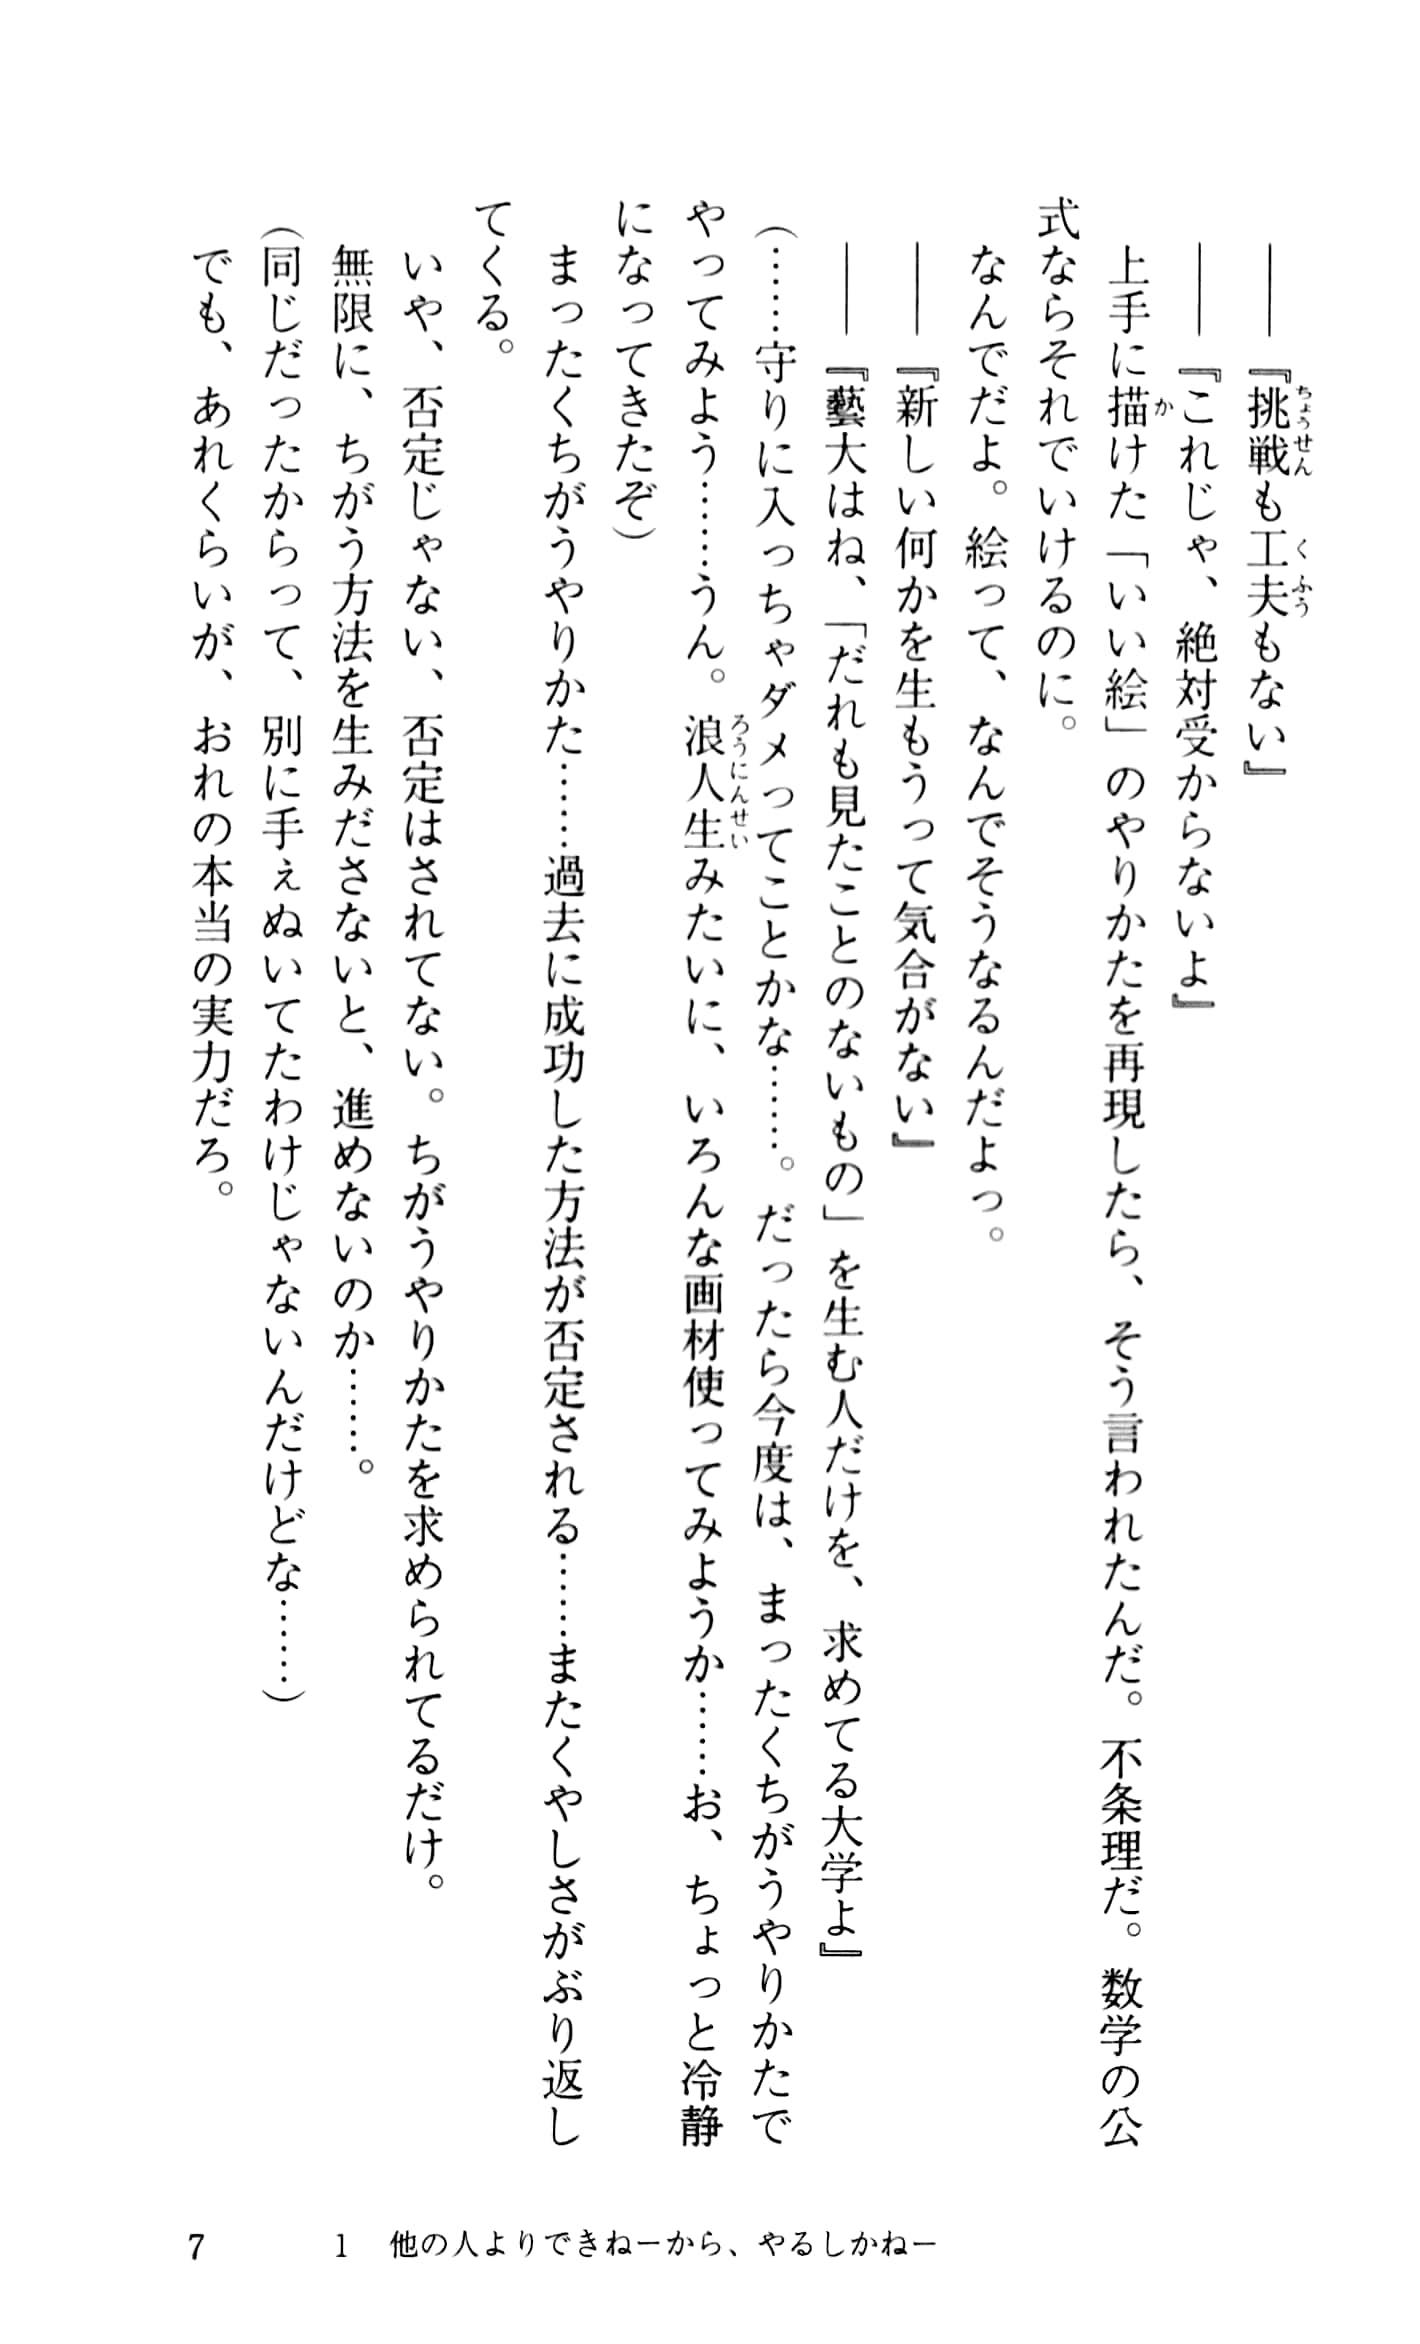 ――『挑戦も工夫もない』
――『これじゃ、絶対受からないよ』
上手に描けた「いい絵」のやりかたを再現したら、そう言われたんだ。不条理だ。数学の公
式ならそれでいけるのに。
なんでだよ。絵って、なんでそうなるんだよっ。
――『新しい何かを生もうって気合がない』
――『藝大はね、「だれも見たことのないもの」を生む人だけを、求めてる大学よ』
(……守りに入っちゃダメってことかな……。だったら今度は、まったくちがうやりかたで
やってみよう……うん。浪人生みたいに、いろんな画材使ってみようか……お、ちょっと冷静
になってきたぞ)
まったくちがうやりかた……過去に成功した方法が否定される……またくやしさがぶり返し
てくる。
いや、否定じゃない、否定はされてない。ちがうやりかたを求められてるだけ。
無限に、ちがう方法を生みださないと、進めないのか……。
(同じだったからって、別に手ぇぬいてたわけじゃないんだけどな……)
でも、あれくらいが、おれの本当の実力だろ。
7 1 他の人よりできねーから、やるしかねー